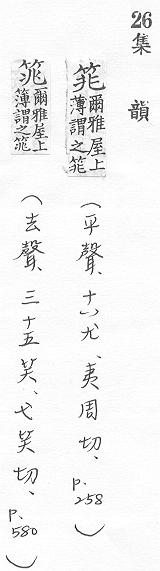 26 集 韻
筄 爾雅屋上薄謂之筄 (平聲、十八尤、夷周切、p.258)
筄 爾雅屋上簿謂之筄 (去聲、三十五笑、弋笑切、p.580)